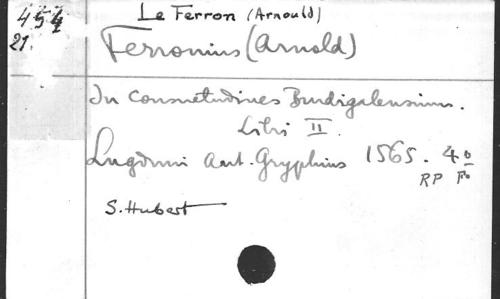 454
21.
Le Ferron (Arnould)
Ferronius (Arnold)
In Consuetudines Burdigalensium.
Libri II.
Lugduni Ant. Gryphius 1565. 4o
RP Fo
S. Hubert